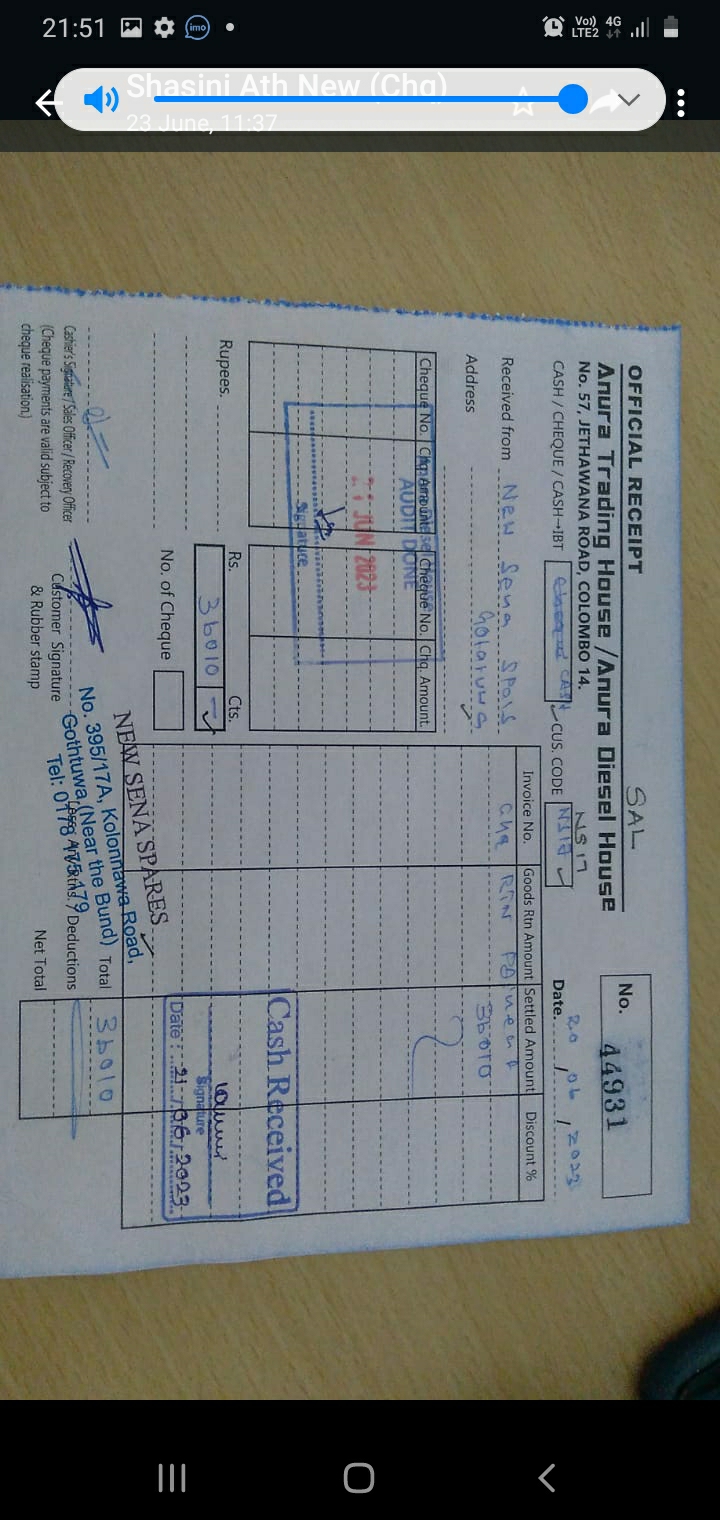 21:51
imo
Vo)) 4G
LTE2
Shasini Ath New (Chq)
23 June, 11:37
OFFICIAL RECEIPT
SAL
No. 44931
Anura Trading House / Anura Diesel House
No. 57, JETHAWANA ROAD, COLOMBO 14.
NS17
CASH / CHEQUE / CASH→IBT CASH CUS. CODE NS17
Date. 20 / 06 / 2023
Received from New Sena Spais
Address
Invoice No. Goods Rtn Amount Settled Amount Discount %
Chq RTN
36010
Cheque No. Chq Amount Cheque No. Chq. Amount.
AUDIT DONE
21 JUN 2023
Signature
Rupees.
Rs. 36010 Cts. -
No. of Cheque
Cash Received
Signature
Date : 21/06/2023
NEW SENA SPARES
No. 395/17A, Kolonnawa Road,
Gothtuwa, (Near the Bund)
Tel:
Total 36010
Deductions
Net Total
Cashier's Signature / Sales Officer / Recovery Officer
(Cheque payments are valid subject to
cheque realisation.)
Customer Signature
& Rubber stamp